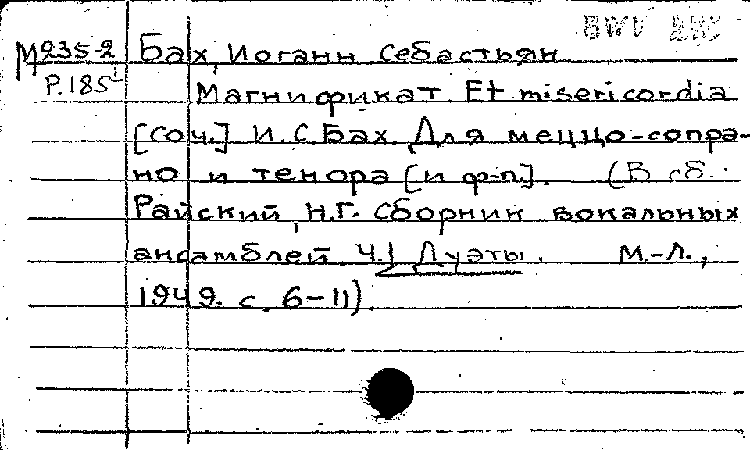 BWV 243
М235-2 Бах, Иоганн Себастьян
Р.185
Магнификат. Et misericordia
[соч.] И.С.Бах. Для меццо-сопра-
но и тенора [и ф-п.]. (В сб.:
Райский, Н.Г. Сборник вокальных
ансамблей. Ч.1 Дуэты. М.-Л.,
1949. с. 6-11).